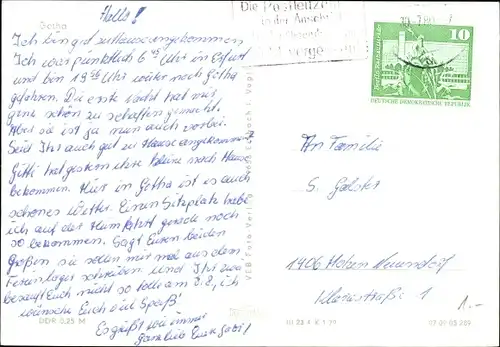 Gotha
Hallo!
Ich bin gut zuhause angekommen.
Ich war pünktlich 6 45 Uhr in Erfurt
und bin Uhr weiter nach Gotha
gefahren. Die erste Nacht hat mir
ganz schön zu schaffen gemacht.
Aber sie ist ja nun auch vorbei.
Seid Ihr auch gut zu Hause angekommen?
hat gestern ihre nach Hause
bekommen. Hier in Gotha ist es auch
schönes Wetter. Einen Sitzplatz habe
ich auf der Heimfahrt gerade noch
so bekommen. Sagt Euren beiden
großen sie sollen mir mal aus dem
Ferienlager schreiben und Ihr zwei
besauft Euch nicht so toll am 2.8., ich
wünsche Euch viel Spaß!
Es grüßt wie immer
ganz lieb Eure Gabi!
DDR 0,25 M
VEB Foto-Verl
Die Postleitzahl
in der Anschrift
nicht vergessen
10
DEUTSCHE DEMOKRATISCHE REPUBLIK
An Familie
S.
1906
1
1.-
III 23 4 K 1 79